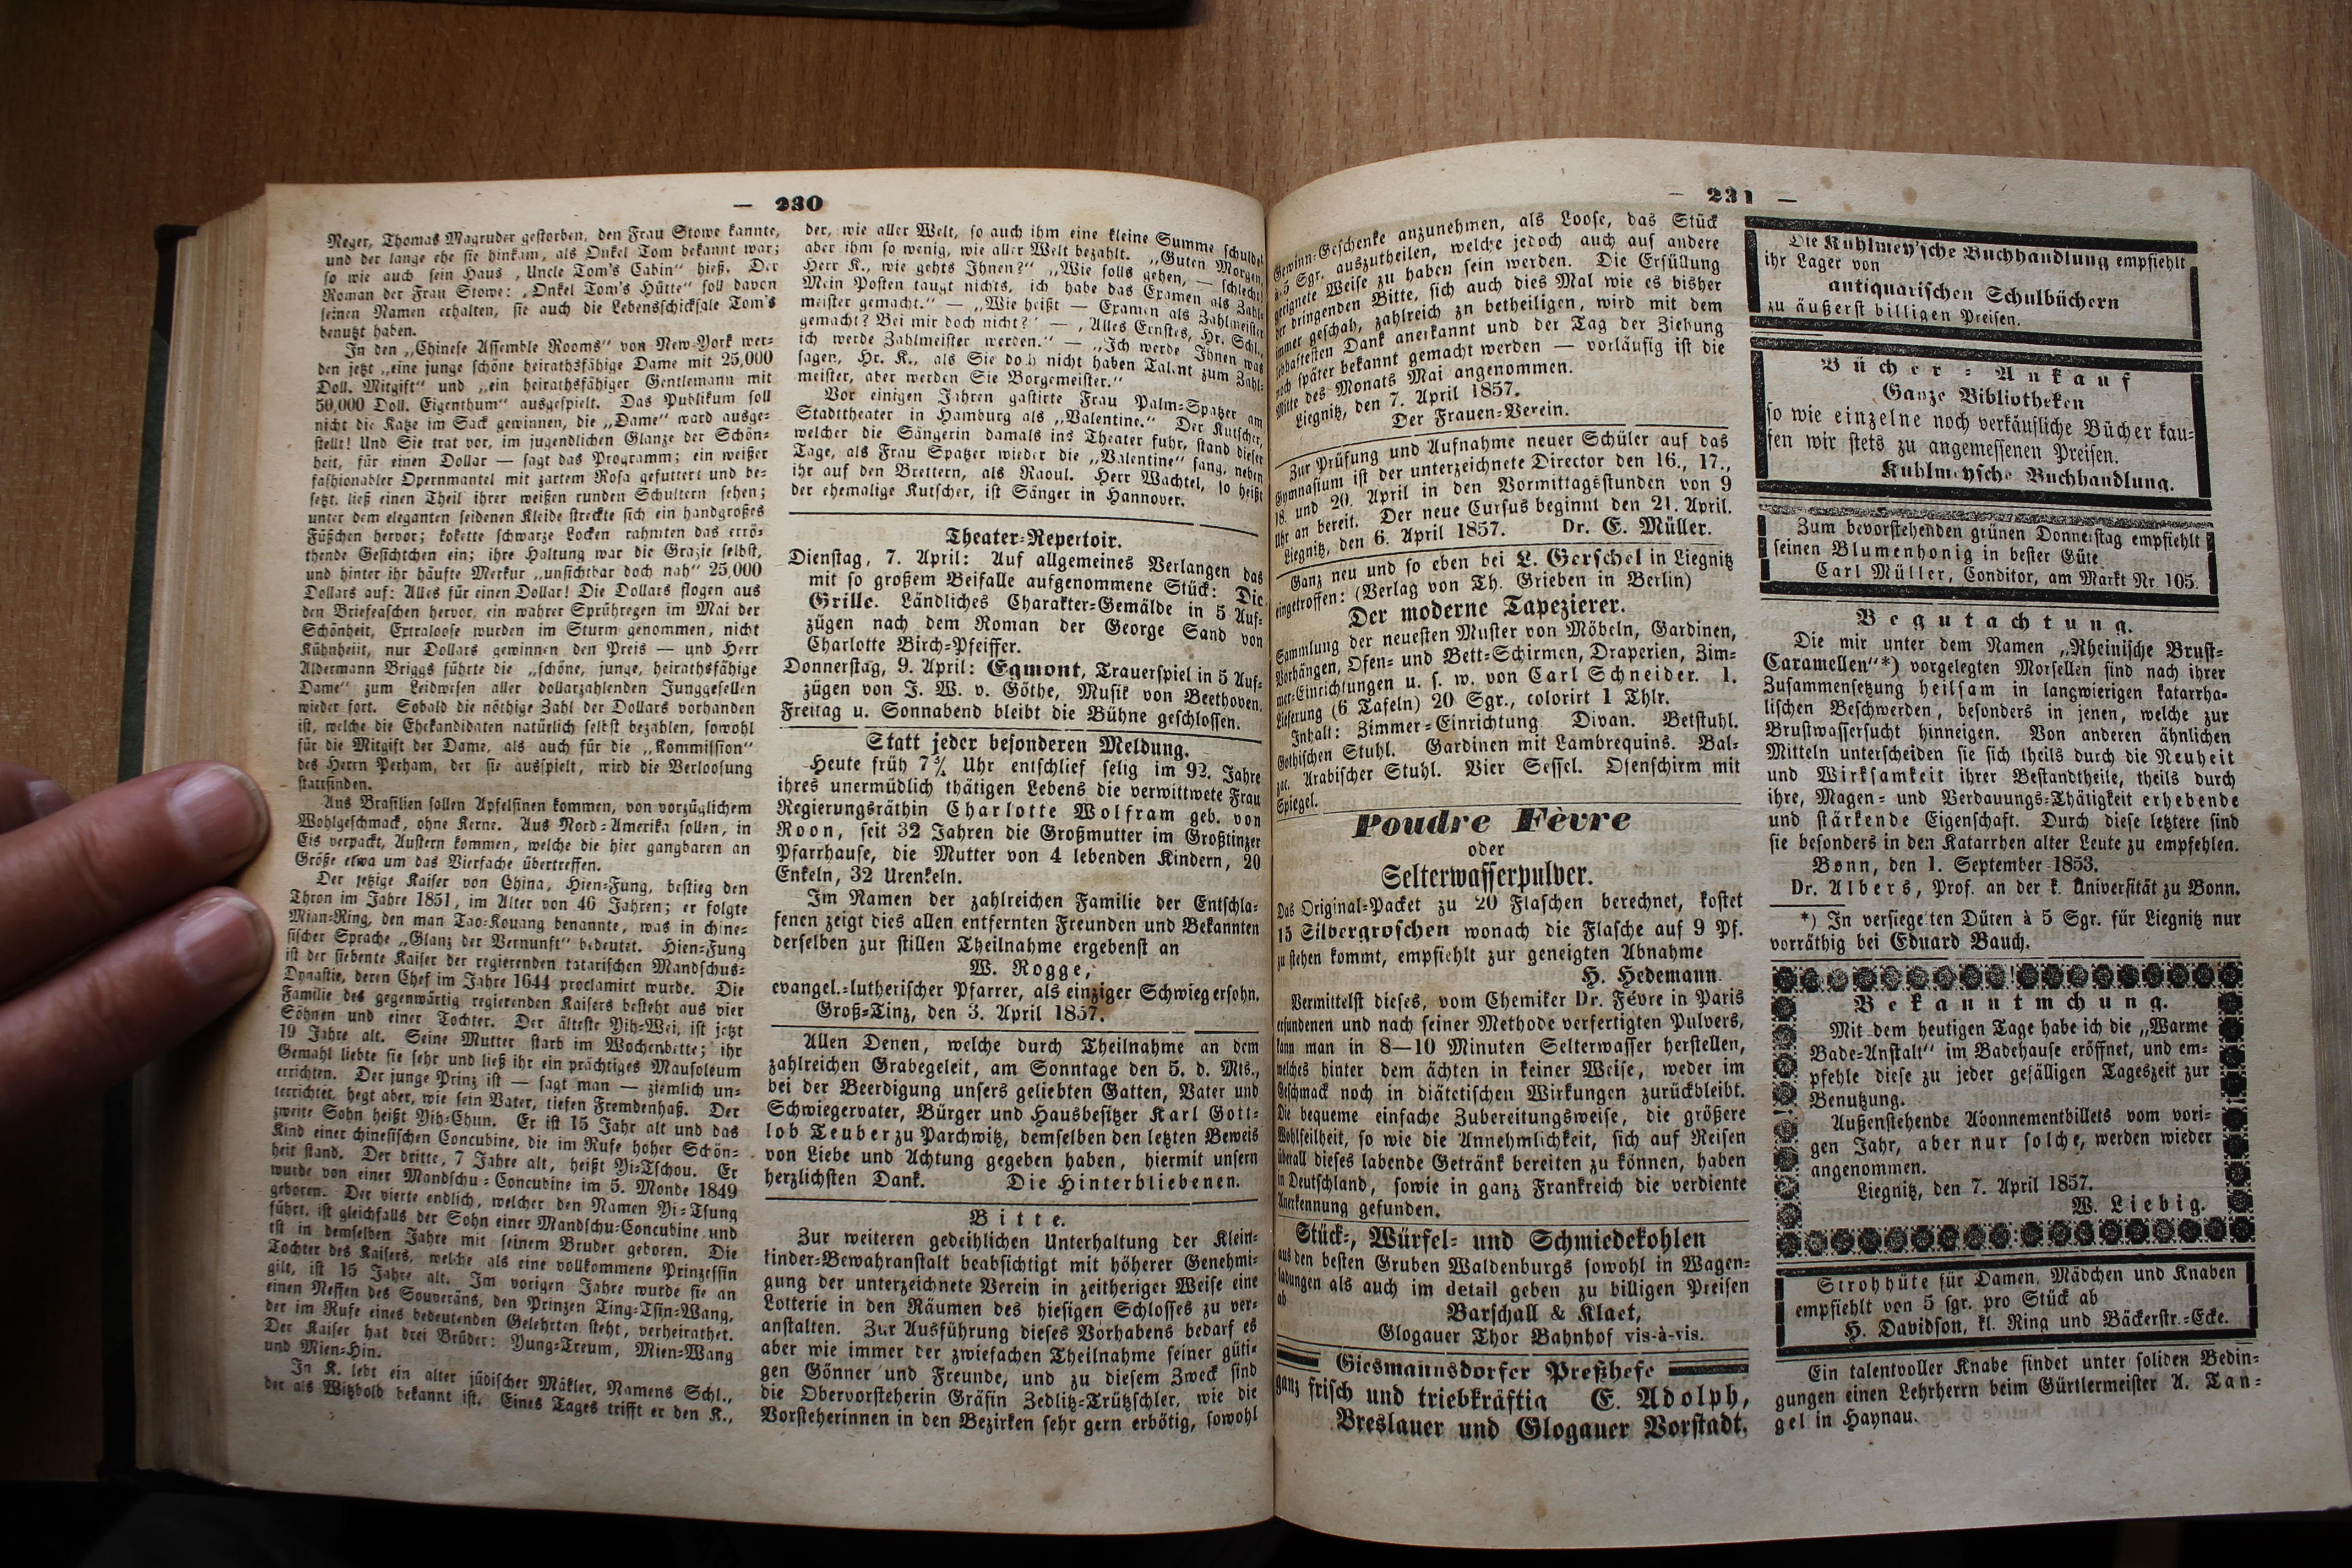 — 230
Neger, Thomas Magruder gestorben, den Frau Stowe kannte,
und der lange ehe sie hinkam, als Onkel Tom bekannt war;
so wie auch sein Haus „Uncle Tom's Cabin“ hieß. Der
Roman der Frau Stowe: „Onkel Tom's Hütte“ soll davon
seinen Namen erhalten, sie auch die Lebensschicksale Tom's
benutzt haben.
In den „Chinese Assemble Rooms“ von New-York wer-
den jetzt „eine junge schöne heirathsfähige Dame mit 25,000
Doll. Mitgift“ und „ein heirathsfähiger Gentlemann mit
50,000 Doll. Eigenthum“ ausgespielt. Das Publikum soll
nicht die Katze im Sack gewinnen, die „Dame“ ward ausge-
stellt! Und Sie trat vor, im jugendlichen Glanze der Schön-
heit, für einen Dollar — sagt das Programm; ein weißer
fashionabler Opernmantel mit zartem Rosa gefuttert und be-
setzt, ließ einen Theil ihrer weißen runden Schultern sehen;
unter dem eleganten seidenen Kleide streckte sich ein handgroßes
Füßchen hervor; kokette schwarze Locken rahmten das errö-
thende Gesichtchen ein; ihre Haltung war die Grazie selbst,
und hinter ihr häufte Merkur „unsichtbar doch nah“ 25,000
Dollars auf: Alles für einen Dollar! Die Dollars flogen aus
den Brieftaschen hervor, ein wahrer Sprühregen im Mai der
Schönheit, Extraloose wurden im Sturm genommen, nicht
Kühnheit, nur Dollars gewinnen den Preis — und Herr
Aldermann Briggs führte die „schöne, junge, heirathsfähige
Dame“ zum Leidwesen aller dollarzahlenden Junggesellen
wieder fort. Sobald die nöthige Zahl der Dollars vorhanden
ist, welche die Ehekandidaten natürlich selbst bezahlen, sowohl
für die Mitgift der Dame, als auch für die „Kommission“
des Herrn Perham, der sie ausspielt, wird die Verloosung
stattfinden.
Aus Brasilien sollen Apfelsinen kommen, von vorzüglichem
Wohlgeschmack, ohne Kerne. Aus Nord-Amerika sollen, in
Eis verpackt, Austern kommen, welche die hier gangbaren an
Größe etwa um das Vierfache übertreffen.
Der jetzige Kaiser von China, Hien-Fung, bestieg den
Thron im Jahre 1851, im Alter von 46 Jahren; er folgte
Mian-Ning, den man Tao-Kouang benannte, was in chine-
sischer Sprache „Glanz der Vernunft“ bedeutet. Hien-Fung
ist der siebente Kaiser der regierenden tatarischen Mandschus-
Dynastie, deren Chef im Jahre 1644 proclamirt wurde. Die
Familie des gegenwärtig regierenden Kaisers besteht aus vier
Söhnen und einer Tochter. Der älteste Yih-Wei, ist jetzt
19 Jahre alt. Seine Mutter starb im Wochenbette; ihr
Gemahl liebte sie sehr und ließ ihr ein prächtiges Mausoleum
errichten. Der junge Prinz ist — sagt man — ziemlich un-
terrichtet, hegt aber, wie sein Vater, tiefen Fremdenhaß. Der
zweite Sohn heißt Yih-Chun. Er ist 15 Jahr alt und das
Kind einer chinesischen Concubine, die im Rufe hoher Schön-
heit stand. Der dritte, 7 Jahre alt, heißt Yi-Tschou. Er
wurde von einer Mandschu-Concubine im 5. Monde 1849
geboren. Der vierte endlich, welcher den Namen Yi-Tsung
führt, ist gleichfalls der Sohn einer Mandschu-Concubine und
ist in demselben Jahre mit seinem Bruder geboren. Die
Tochter des Kaisers, welche als eine vollkommene Prinzessin
gilt, ist 15 Jahre alt. Im vorigen Jahre wurde sie an
einen Neffen des Souveräns, den Prinzen Ting-Tsin-Wang,
der im Rufe eines bedeutenden Gelehrten steht, verheirathet.
Der Kaiser hat drei Brüder: Yung-Treum, Mien-Wang
und Mien-Hin.
In K. lebt ein alter jüdischer Mäkler, Namens Schl.,
der als Witzbold bekannt ist. Eines Tages trifft er den K.,
der, wie aller Welt, so auch ihm eine kleine Summe schuldet
aber ihm so wenig, wie aller Welt bezahlt. „Guten Morgen,
Herr K., wie gehts Ihnen?“ „Wie solls gehen, — schlecht!
Mein Posten taugt nichts, ich habe das Examen als Zahl-
meister gemacht.“ — „Wie heißt — Examen als Zahlmeister
gemacht? Bei mir doch nicht?“ — „Alles Ernstes, Hr. Schl.,
ich werde Zahlmeister werden.“ — „Ich werde Ihnen was
sagen, Hr. K., als Sie doch nicht haben Talent zum Zahl-
meister, aber werden Sie Borgemeister.“
Vor einigen Jahren gastirte Frau Palm-Spatzer am
Stadttheater in Hamburg als „Valentine.“ Der Kutscher,
welcher die Sängerin damals ins Theater fuhr, stand dieser
Tage, als Frau Spatzer wieder die „Valentine“ sang, neben
ihr auf den Brettern, als Raoul. Herr Wachtel, so heißt
der ehemalige Kutscher, ist Sänger in Hannover.
Theater-Repertoir.
Dienstag, 7. April: Auf allgemeines Verlangen das
mit so großem Beifalle aufgenommene Stück: Die
Grille. Ländliches Charakter-Gemälde in 5 Auf-
zügen nach dem Roman der George Sand von
Charlotte Birch-Pfeiffer.
Donnerstag, 9. April: Egmont, Trauerspiel in 5 Auf-
zügen von J. W. v. Göthe, Musik von Beethoven.
Freitag u. Sonnabend bleibt die Bühne geschlossen.
Statt jeder besonderen Meldung.
Heute früh 7¾ Uhr entschlief selig im 92. Jahre
ihres unermüdlich thätigen Lebens die verwittwete Frau
Regierungsräthin Charlotte Wolfram geb. von
Roon, seit 32 Jahren die Großmutter im Großtinzer
Pfarrhause, die Mutter von 4 lebenden Kindern, 20
Enkeln, 32 Urenkeln.
Im Namen der zahlreichen Familie der Entschla-
fenen zeigt dies allen entfernten Freunden und Bekannten
derselben zur stillen Theilnahme ergebenst an
W. Rogge,
evangel.-lutherischer Pfarrer, als einziger Schwiegersohn.
Groß-Tinz, den 3. April 1857.
Allen Denen, welche durch Theilnahme an dem
zahlreichen Grabegeleit, am Sonntage den 5. d. Mts.,
bei der Beerdigung unsers geliebten Gatten, Vater und
Schwiegervater, Bürger und Hausbesitzer Karl Gott-
lob Teuber zu Parchwitz, demselben den letzten Beweis
von Liebe und Achtung gegeben haben, hiermit unsern
herzlichsten Dank. Die Hinterbliebenen.
Bitte.
Zur weiteren gedeihlichen Unterhaltung der Klein-
kinder-Bewahranstalt beabsichtigt mit höherer Genehmi-
gung der unterzeichnete Verein in zeitheriger Weise eine
Lotterie in den Räumen des hiesigen Schlosses zu ver-
anstalten. Zur Ausführung dieses Vorhabens bedarf es
aber wie immer der zwiefachen Theilnahme seiner güti-
gen Gönner und Freunde, und zu diesem Zweck sind
die Obervorsteherin Gräfin Zedlitz-Trützschler, wie die
Vorsteherinnen in den Bezirken sehr gern erbötig, sowohl
— 231 —
Gewinn-Geschenke anzunehmen, als Loose, das Stück
à 5 Sgr. auszutheilen, welche jedoch auch auf andere
geeignete Weise zu haben sein werden. Die Erfüllung
der dringenden Bitte, sich auch dies Mal wie es bisher
immer geschah, zahlreich zu betheiligen, wird mit dem
lebhaftesten Dank anerkannt und der Tag der Ziehung
noch später bekannt gemacht werden — vorläufig ist die
Mitte des Monats Mai angenommen.
Liegnitz, den 7. April 1857.
Der Frauen-Verein.
Zur Prüfung und Aufnahme neuer Schüler auf das
Gymnasium ist der unterzeichnete Director den 16., 17.,
18. und 20. April in den Vormittagsstunden von 9
Uhr an bereit. Der neue Cursus beginnt den 21. April.
Liegnitz, den 6. April 1857. Dr. E. Müller.
Ganz neu und so eben bei L. Gerschel in Liegnitz
eingetroffen: (Verlag von Th. Grieben in Berlin)
Der moderne Tapezierer.
Sammlung der neuesten Muster von Möbeln, Gardinen,
Vorhängen, Ofen- und Bett-Schirmen, Draperien, Zim-
mer-Einrichtungen u. s. w. von Carl Schneider. 1.
Lieferung (6 Tafeln) 20 Sgr., colorirt 1 Thlr.
Inhalt: Zimmer-Einrichtung Divan. Betstuhl.
Gothischen Stuhl. Gardinen mit Lambrequins. Bal-
zac. Arabischer Stuhl. Vier Sessel. Ofenschirm mit
Spiegel.
Poudre Fèvre
oder
Selterwasserpulver.
Das Original-Packet zu 20 Flaschen berechnet, kostet
15 Silbergroschen wonach die Flasche auf 9 Pf.
zu stehen kommt, empfiehlt zur geneigten Abnahme
H. Hedemann.
Vermittelst dieses, vom Chemiker Dr. Févre in Paris
erfundenen und nach seiner Methode verfertigten Pulvers,
kann man in 8—10 Minuten Selterwasser herstellen,
welches hinter dem ächten in keiner Weise, weder im
Geschmack noch in diätetischen Wirkungen zurückbleibt.
Die bequeme einfache Zubereitungsweise, die größere
Wohlfeilheit, so wie die Annehmlichkeit, sich auf Reisen
überall dieses labende Getränk bereiten zu können, haben
in Deutschland, sowie in ganz Frankreich die verdiente
Anerkennung gefunden.
Stück-, Würfel- und Schmiedekohlen
aus den besten Gruben Waldenburgs sowohl in Wagen-
ladungen als auch im detail geben zu billigen Preisen
ab
Barschall & Klaet,
Glogauer Thor Bahnhof vis-à-vis.
Giesmannsdorfer Preßhefe
ganz frisch und triebkräftig E. Adolph,
Breslauer und Glogauer Vorstadt.
Die Kuhlmey'sche Buchhandlung empfiehlt
ihr Lager von
antiquarischen Schulbüchern
zu äußerst billigen Preisen.
Bücher-Ankauf
Ganze Bibliotheken
so wie einzelne noch verkäufliche Bücher kau-
fen wir stets zu angemessenen Preisen.
Kuhlmeysche Buchhandlung.
Zum bevorstehenden grünen Donnerstag empfiehlt
seinen Blumenhonig in bester Güte
Carl Müller, Conditor, am Markt Nr. 105.
Begutachtung.
Die mir unter dem Namen „Rheinische Brust-
Caramellen“*) vorgelegten Morsellen sind nach ihrer
Zusammensetzung heilsam in langwierigen katarrha-
lischen Beschwerden, besonders in jenen, welche zur
Brustwassersucht hinneigen. Von anderen ähnlichen
Mitteln unterscheiden sie sich theils durch die Neuheit
und Wirksamkeit ihrer Bestandtheile, theils durch
ihre, Magen- und Verdauungs-Thätigkeit erhebende
und stärkende Eigenschaft. Durch diese letztere sind
sie besonders in den Katarrhen alter Leute zu empfehlen.
Bonn, den 1. September 1853.
Dr. Albers, Prof. an der k. Universität zu Bonn.
*) In versiegelten Düten à 5 Sgr. für Liegnitz nur
vorräthig bei Eduard Bauch.
Bekanntmchung.
Mit dem heutigen Tage habe ich die „Warme
Bade-Anstalt“ im Badehause eröffnet, und em-
pfehle diese zu jeder gefälligen Tageszeit zur
Benutzung.
Außenstehende Abonnementbillets vom vori-
gen Jahr, aber nur solche, werden wieder
angenommen.
Liegnitz, den 7. April 1857.
W. Liebig.
Strohhüte für Damen, Mädchen und Knaben
empfiehlt von 5 sgr. pro Stück ab
H. Davidson, kl. Ring und Bäckerstr.-Ecke.
Ein talentvoller Knabe findet unter soliden Bedin-
gungen einen Lehrherrn beim Gürtlermeister A. Tan-
gel in Haynau.